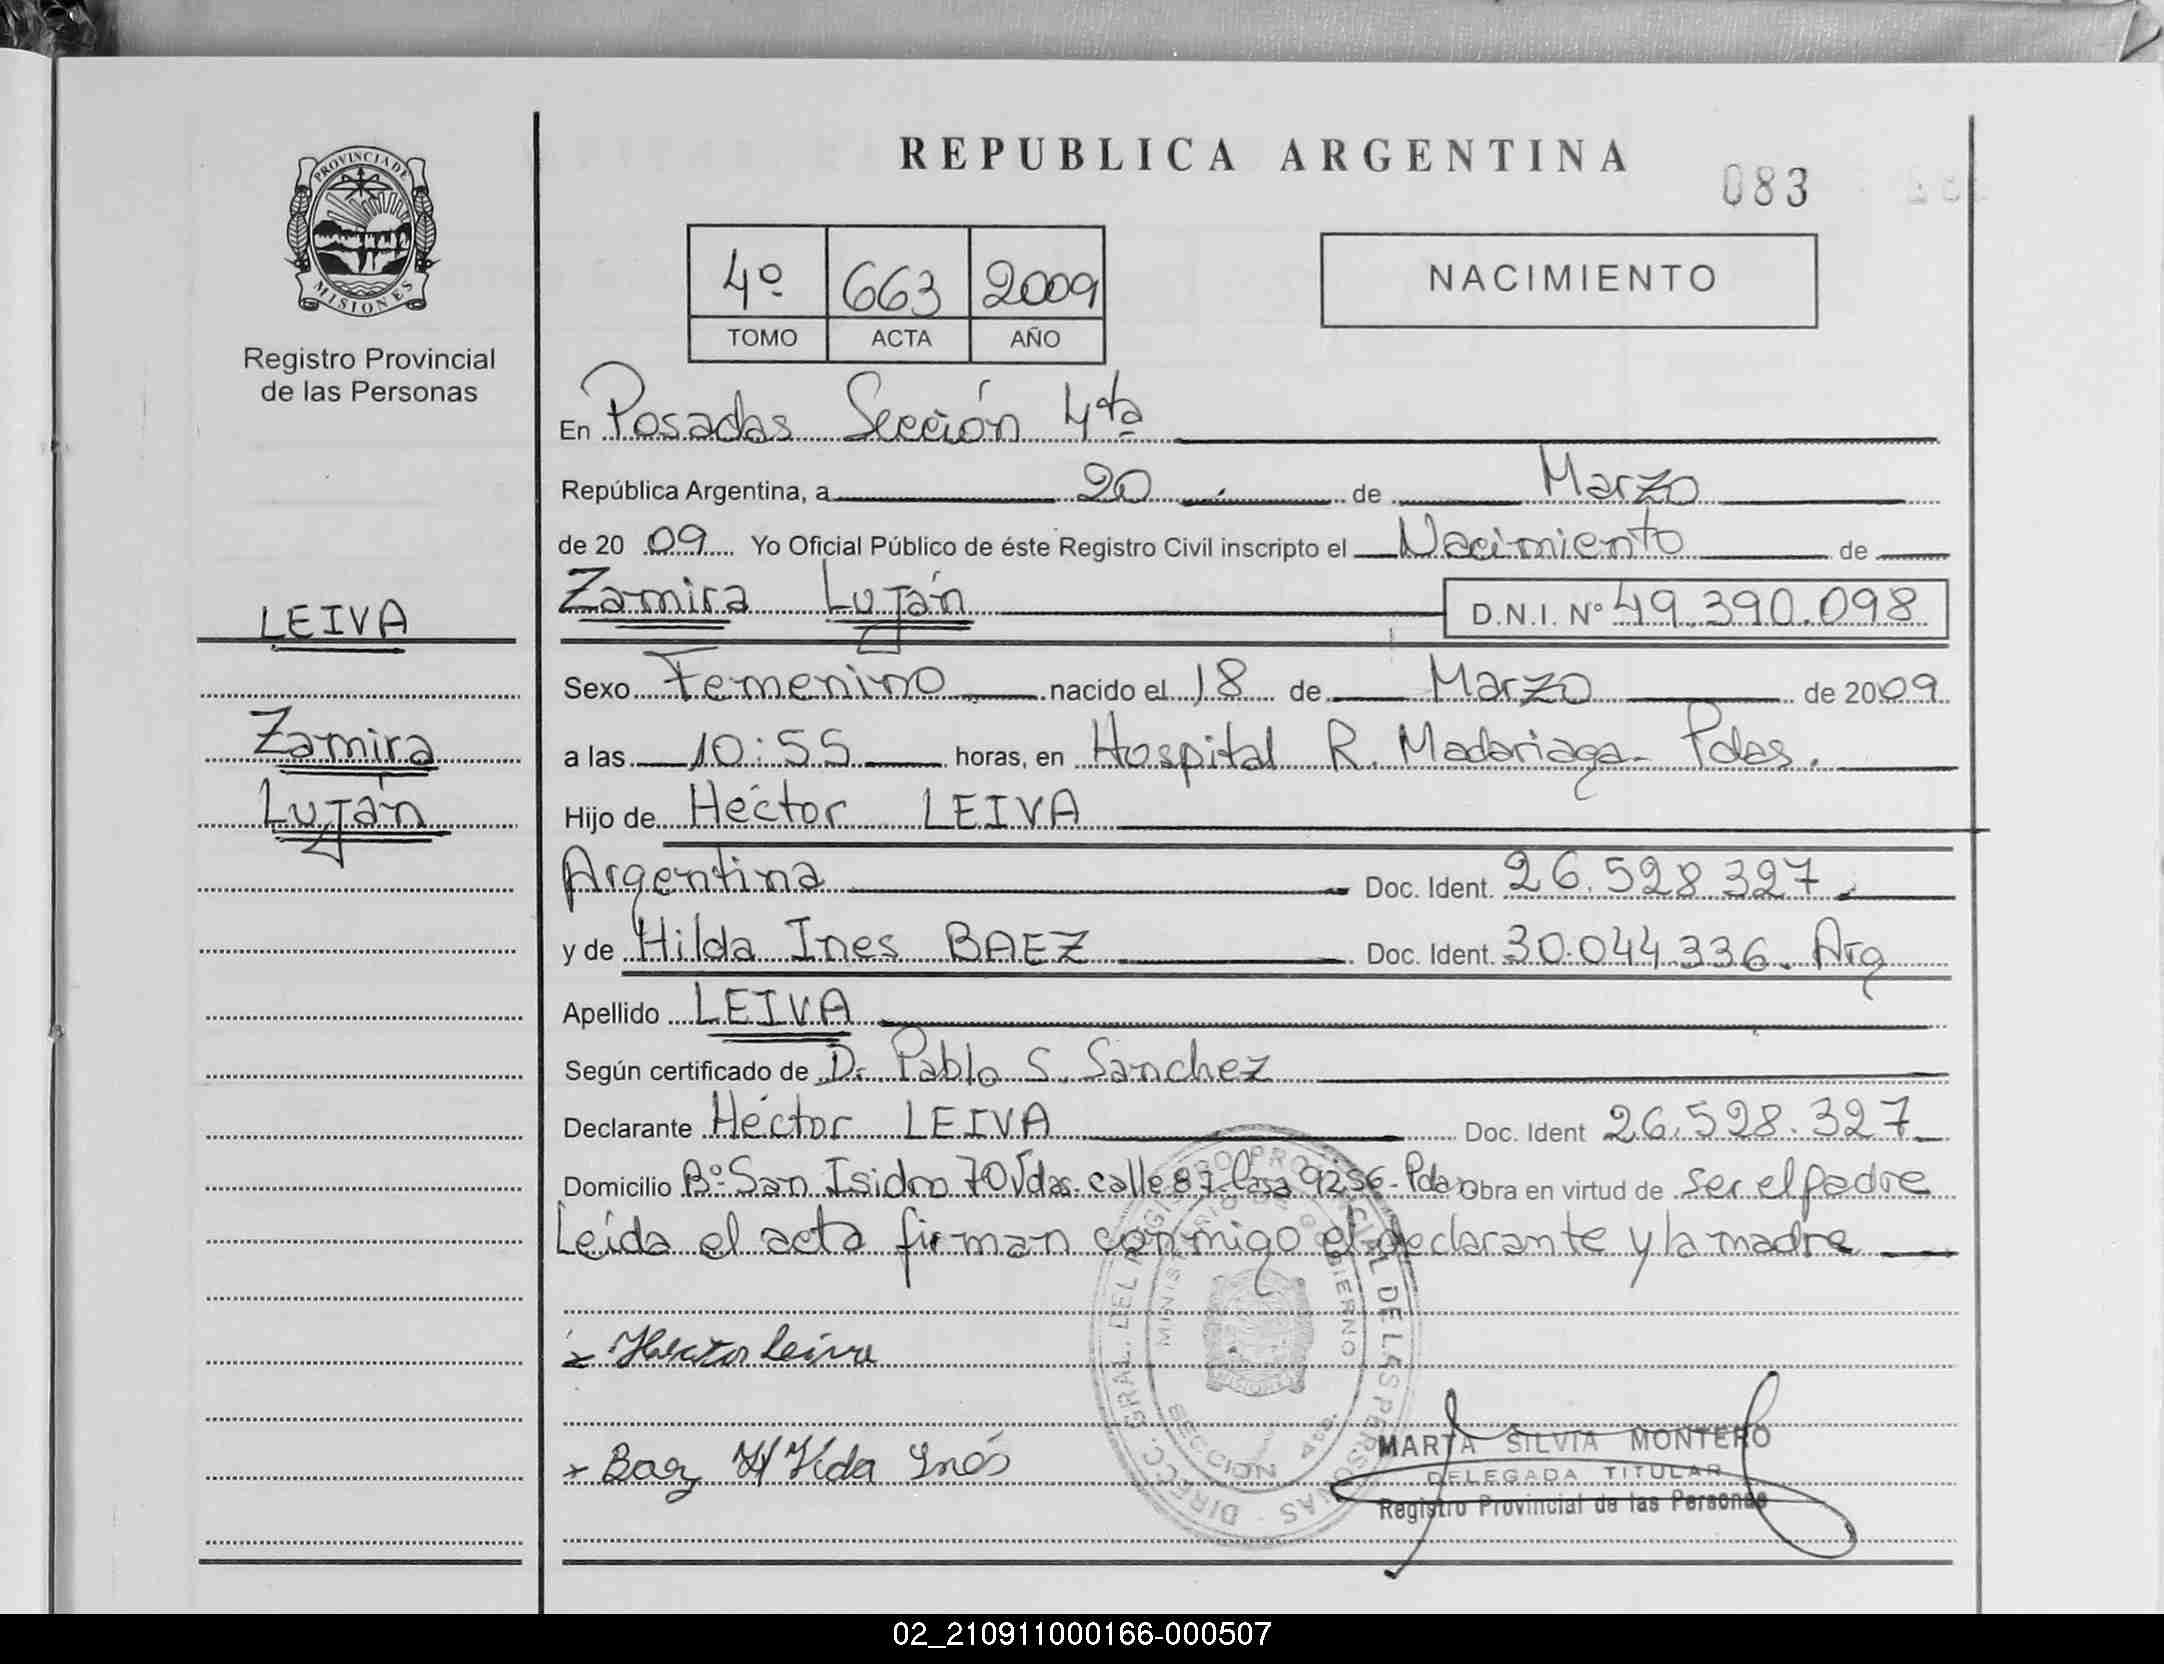 REPUBLICA ARGENTINA
083
PROVINCIA DE
MISIONES
Registro Provincial
de las Personas
4º 663 2009
TOMO ACTA AÑO
NACIMIENTO
En Posadas Sección 4ta
República Argentina, a 20 de Marzo
de 2009 Yo Oficial Público de éste Registro Civil inscripto el Nacimiento de
LEIVA
Zamira Luján D.N.I. Nº 49.390.098
Sexo Femenino nacido el 18 de Marzo de 2009
Zamira
a las 10:55 horas, en Hospital R. Madariaga- Pdas.
Luján
Hijo de Héctor LEIVA
Argentina Doc. Ident. 26.528.327
y de Hilda Ines BAEZ Doc. Ident. 30.044.336. Arg
Apellido LEIVA
Según certificado de Dr Pablo S. Sanchez
Declarante Héctor LEIVA Doc. Ident 26.528.327
Domicilio Bº San Isidro 70 Vdas. calle 87 Casa 9256- Pdas Obra en virtud de ser el padre
Leída el acta firman conmigo el declarante y la madre
DIRECC. GRAL. DEL REGISTRO PROVINCIAL DE LAS PERSONAS
MINISTERIO DE GOBIERNO
SECCION 4ta
Hector Leiva
Baez Hilda Inés
MARTA SILVIA MONTERO
DELEGADA TITULAR
Registro Provincial de las Personas
02_210911000166-000507